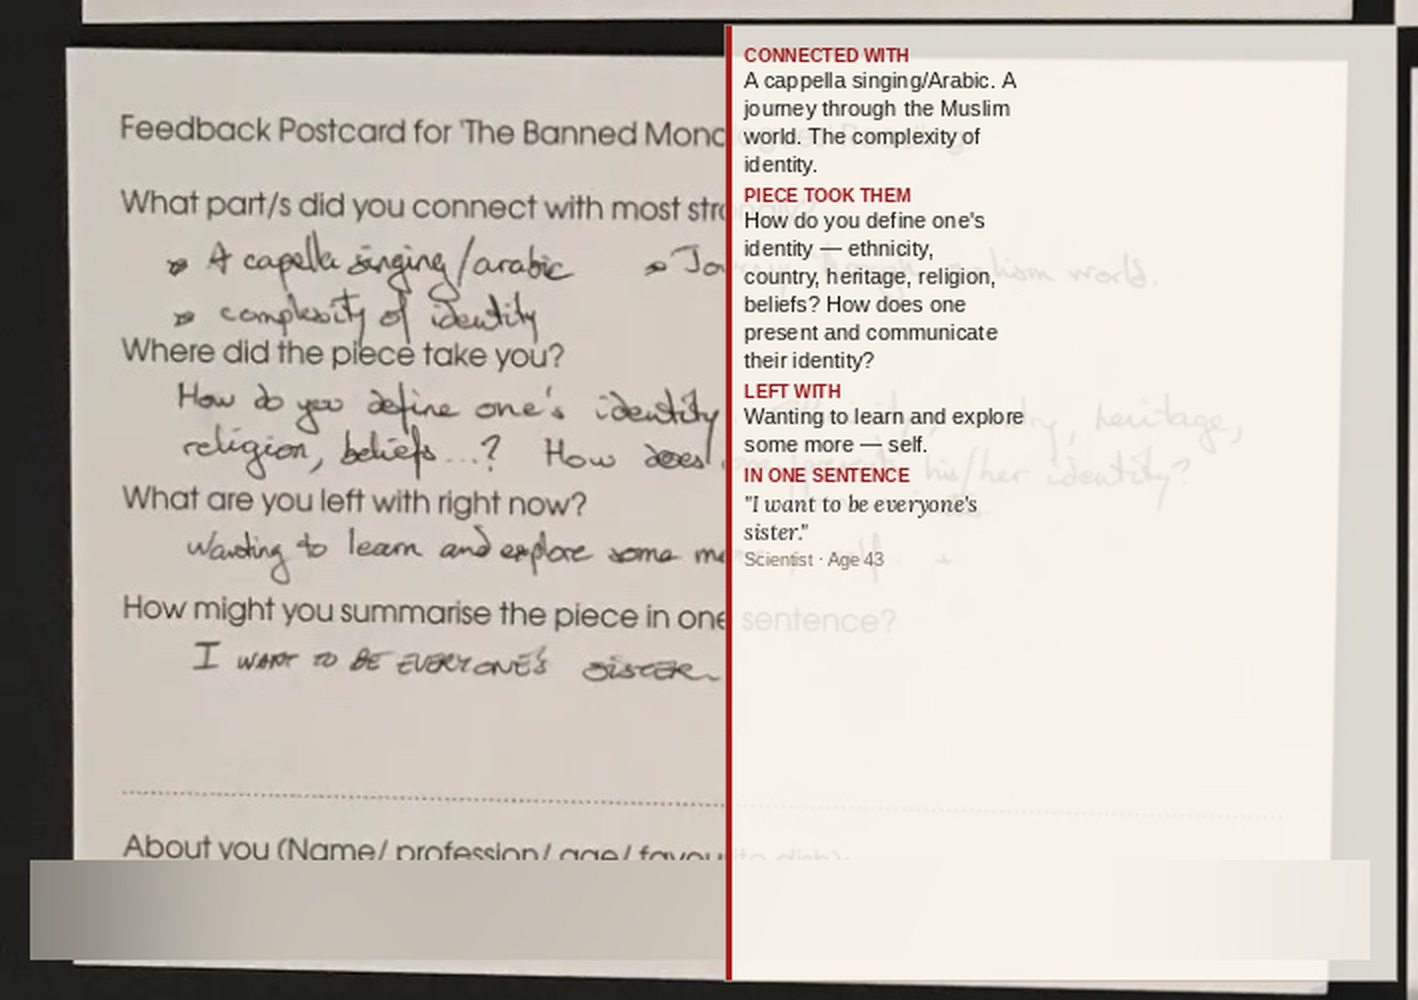 Feedback Postcard for 'The Banned Mono
What part/s did you connect with most strongly?
A capella singing/arabic Journey through muslim world.
complexity of identity
Where did the piece take you?
How do you define one's identity country, heritage,
religion, beliefs...? How does one present his/her identity?
What are you left with right now?
Wanting to learn and explore some more, self.
How might you summarise the piece in one sentence?
I WANT TO BE EVERYONE'S SISTER
About you (Name/ profession/ age/ favourite dish):
CONNECTED WITH
A cappella singing/Arabic. A
journey through the Muslim
world. The complexity of
identity.
PIECE TOOK THEM
How do you define one's
identity — ethnicity,
country, heritage, religion,
beliefs? How does one
present and communicate
their identity?
LEFT WITH
Wanting to learn and explore
some more — self.
IN ONE SENTENCE
"I want to be everyone's
sister."
Scientist · Age 43